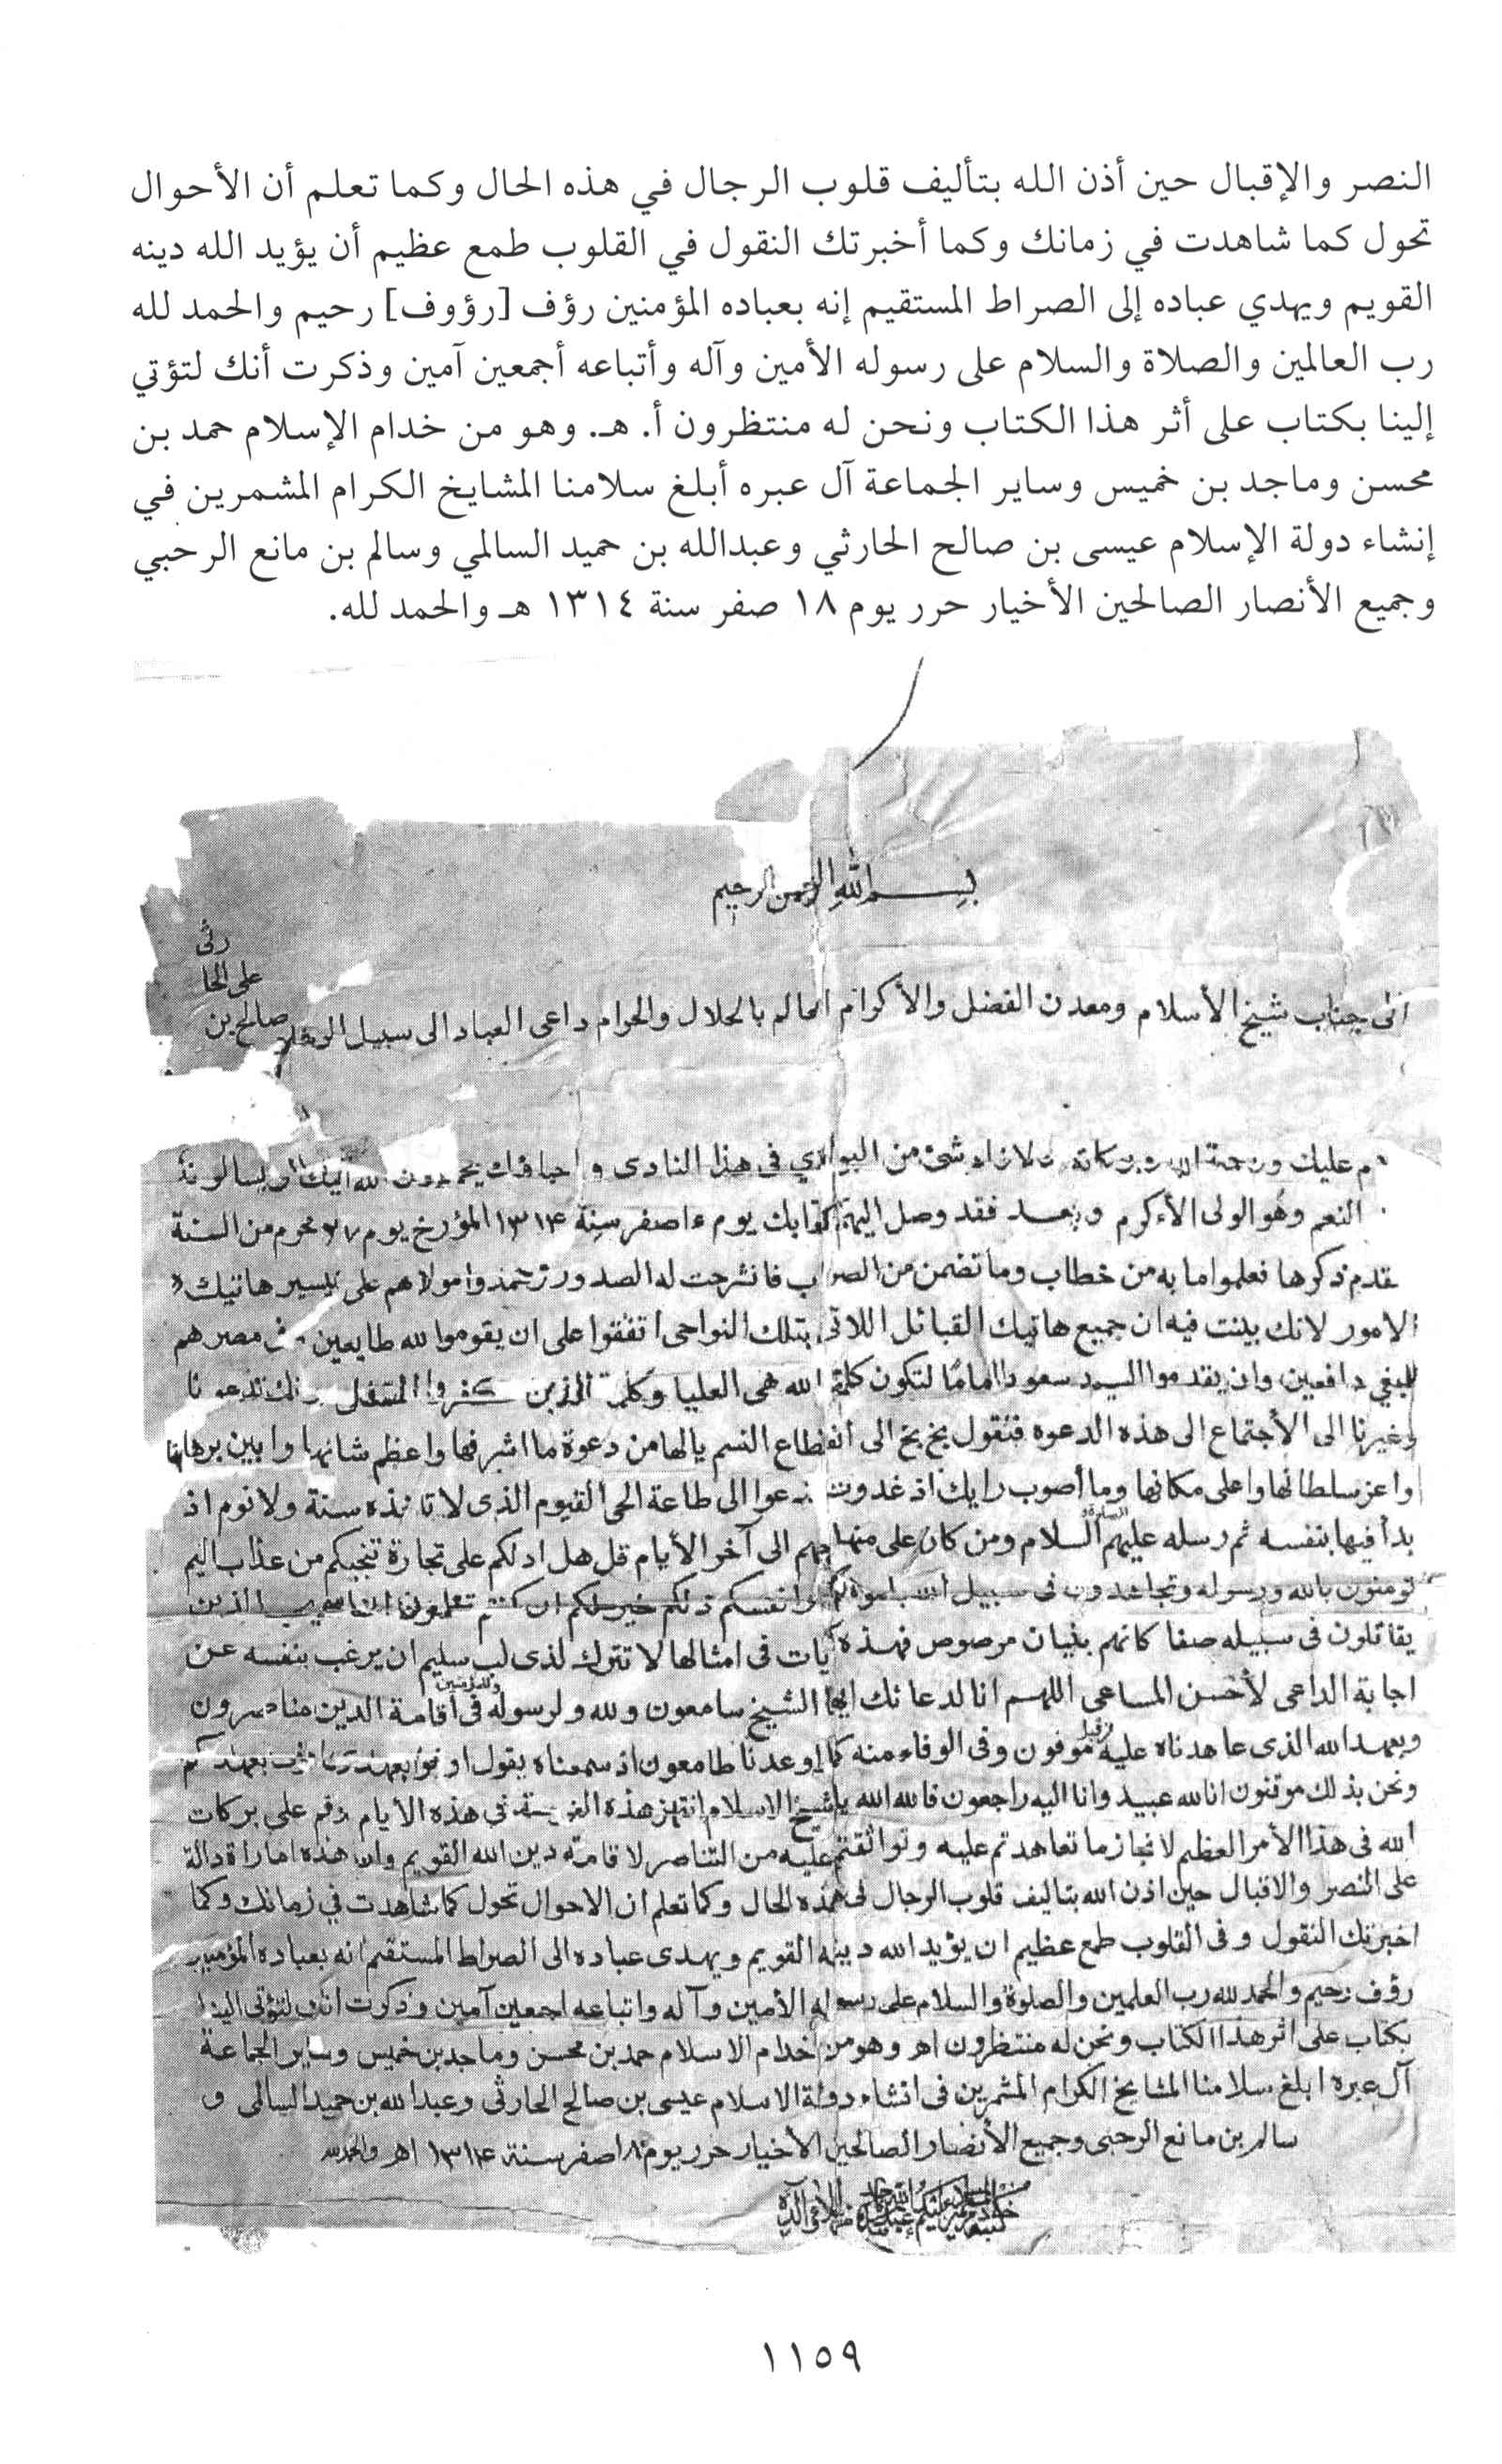 النصر والإقبال حين أذن الله بتأليف قلوب الرجال في هذه الحال وكما تعلم أن الأحوال
تحول كما شاهدت في زمانك وكما أخبرتك النقول في القلوب طمع عظيم أن يؤيد الله دينه
القويم ويهدي عباده إلى الصراط المستقيم إنه بعباده المؤمنين رؤف [رؤوف] رحيم والحمد لله
رب العالمين والصلاة والسلام على رسوله الأمين وآله وأتباعه أجمعين آمين وذكرت أنك لتؤتي
إلينا بكتاب على أثر هذا الكتاب ونحن له منتظرون أ. هـ. وهو من خدام الإسلام حمد بن
محسن وماجد بن خميس وساير الجماعة آل عبره أبلغ سلامنا المشايخ الكرام المشمرين في
إنشاء دولة الإسلام عيسى بن صالح الحارثي وعبدالله بن حميد السالمي وسالم بن مانع الرحبي
وجميع الأنصار الصالحين الأخيار حرر يوم ١٨ صفر سنة ١٣١٤ هـ والحمد لله.
بسم الله الرحمن الرحيم
الى جناب شيخ الأسلام ومعدن الفضل والأكرام العالم بالحلال والحرام داعى العباد الى سبيل الرشاد صالح بن
على الحا
رثى
م عليك ورحمة الله وبركاته ولا زاد شئ من البوادي فى هذا النادى واحبائك يحمدون الله اليك ويسالونه
النعم وهو الولى الأكرم وبعد فقد وصل اليهم كتابك يوم ١٥ صفر سنة ١٣١٤ المؤرخ يوم ٢٧ محرم من السنة
تقدم ذكرها فعلموا ما به من خطاب وما تضمن من الصواب فانشرحت له الصدور وحمدوا مولاهم على تيسير هاتيك
الامور لانك بينت فيه ان جميع هاتيك القبائل اللاتى بتلك النواحى اتفقوا على ان يقوموا لله طايعين وفى مصرهم
للبغي دافعين وان يقدموا السيد سعود اماما لتكون كلمة الله هى العليا وكلمة الذين كفروا السفلى وانك تدعونا
وغيرنا الى الأجتماع الى هذه الدعوه فنقول بخ بخ الى انقطاع النسم يالها من دعوة ما اشرفها واعظم شانها وابين برهانها
واعز سلطانها واعلى مكانها وما أصوب رايك اذ غدوت تدعوا الى طاعة الحى القيوم الذى لا تاخذه سنة ولا نوم اذ
بدأ فيها بنفسه ثم رسله عليهم الصلوة والسلام ومن كان على منهاجهم الى آخر الأيام قل هل ادلكم على تجارة تنجيكم من عذاب اليم
تومنون بالله ورسوله وتجاهدون فى سبيل الله باموالكم وانفسكم ذلكم خير لكم ان كنتم تعلمون ان الله يحب الذين
يقاتلون فى سبيله صفا كانهم بنيان مرصوص فهذه آيات فى امثالها لا تترك لذى لب سليم ان يرغب بنفسه عن
اجابة الداعى لأحسن المساعى اللهم انا لدعائك ايها الشيخ سامعون ولله ولرسوله وللمؤمنين فى اقامة الدين مناصرون
وبعهد الله الذى عاهدناه عليه موفون وفى الوفاء منه كما اوعدنا طامعون اذ سمعناه يقول اوفوا بعهدى اوف بعهدكم
ونحن بذلك موقنون انا لله عبيد وانا اليه راجعون فالله الله يا شيخ الاسلام انتهز هذه الفرصة فى هذه الأيام وقم على بركات
الله فى هذا الأمر العظيم لانجاز ما تعاهدتم عليه وتواثقتم عليه من التناصر لاقامة دين الله القويم وان هذه امارة دالة
على النصر والاقبال حين اذن الله بتاليف قلوب الرجال فى هذه الحال وكما تعلم ان الاحوال تحول كما شاهدت في زمانك وكما
اخبرتك النقول وفى القلوب طمع عظيم ان يؤيد الله دينه القويم ويهدى عباده الى الصراط المستقيم انه بعباده المؤمنين
رؤف رحيم والحمد لله رب العلمين والصلوة والسلام على رسوله الأمين وآله واتباعه اجمعين آمين وذكرت انك لتؤتى الينا
بكتاب على اثر هذا الكتاب ونحن له منتظرون اهـ وهو من خدام الاسلام حمد بن محسن وماجد بن خميس وساير الجماعة
آل عبره ابلغ سلامنا المشايخ الكرام المشمرين فى انشاء دولة الاسلام عيسى بن صالح الحارثى وعبد الله بن حميد السالمى و
سالم بن مانع الرحبى وجميع الأنصار الصالحين الأخيار حرر يوم ١٨ صفر سنة ١٣١٤ اهـ والحمد لله
١١٥٩